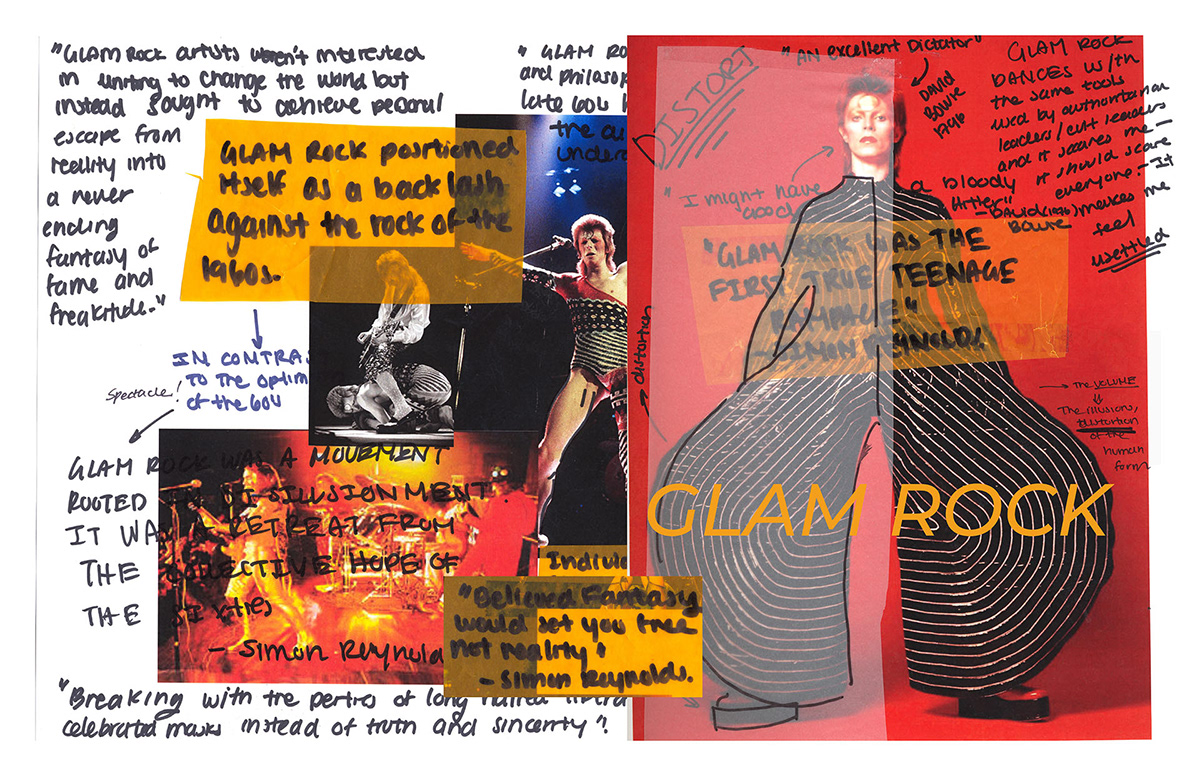 "GLAM ROCK artists weren't interested
in writing to change the world but
instead sought to achieve personal
escape from
reality into
a never
ending
fantasy of
fame and
freakitude."
GLAM ROCK positioned
itself as a backlash
against the rock of the
1960s.
IN CONTRAS
TO THE OPTIM
of the 60s
Spectacle!
GLAM ROCK WAS A MOVEMENT
ROOTED IN DISILLUSIONMENT.
IT WAS A RETREAT FROM
THE COLLECTIVE HOPE OF
THE SIXTIES
- Simon Reynolds
"Breaking with the pieties of long haired
celebrated masks instead of truth and sincerity".
" GLAM RO
and philosop
late 60s
the au
Under
Individ
"Believed Fantasy
would set you free
not reality"
- Simon Reynolds.
DISTORT
"AN excellent Dictator"
DAVID
BOWIE
1976
"I might have
a bloody
good
Hitler"
- David
BOWIE
(1976)
GLAM ROCK
DANCES with
the same tools
used by authoritarian
leaders/cult leaders
and it scares me -
it should scare
everyone. - It
makes me
feel
"GLAM ROCK WAS THE
FIRST TRUE TEENAGE
RAMPAGE"
- SIMON REYNOLDS.
distortion
The VOLUME
The illusions,
distortion
of the
human
form
GLAM ROCK